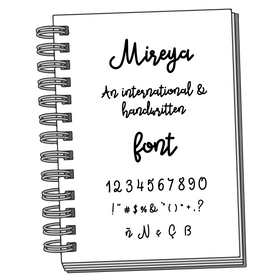 Mireya
An international &
handwritten
font
1234567890
!"#$%&'()*+,?
ñ Ñ ¢ Ç ß